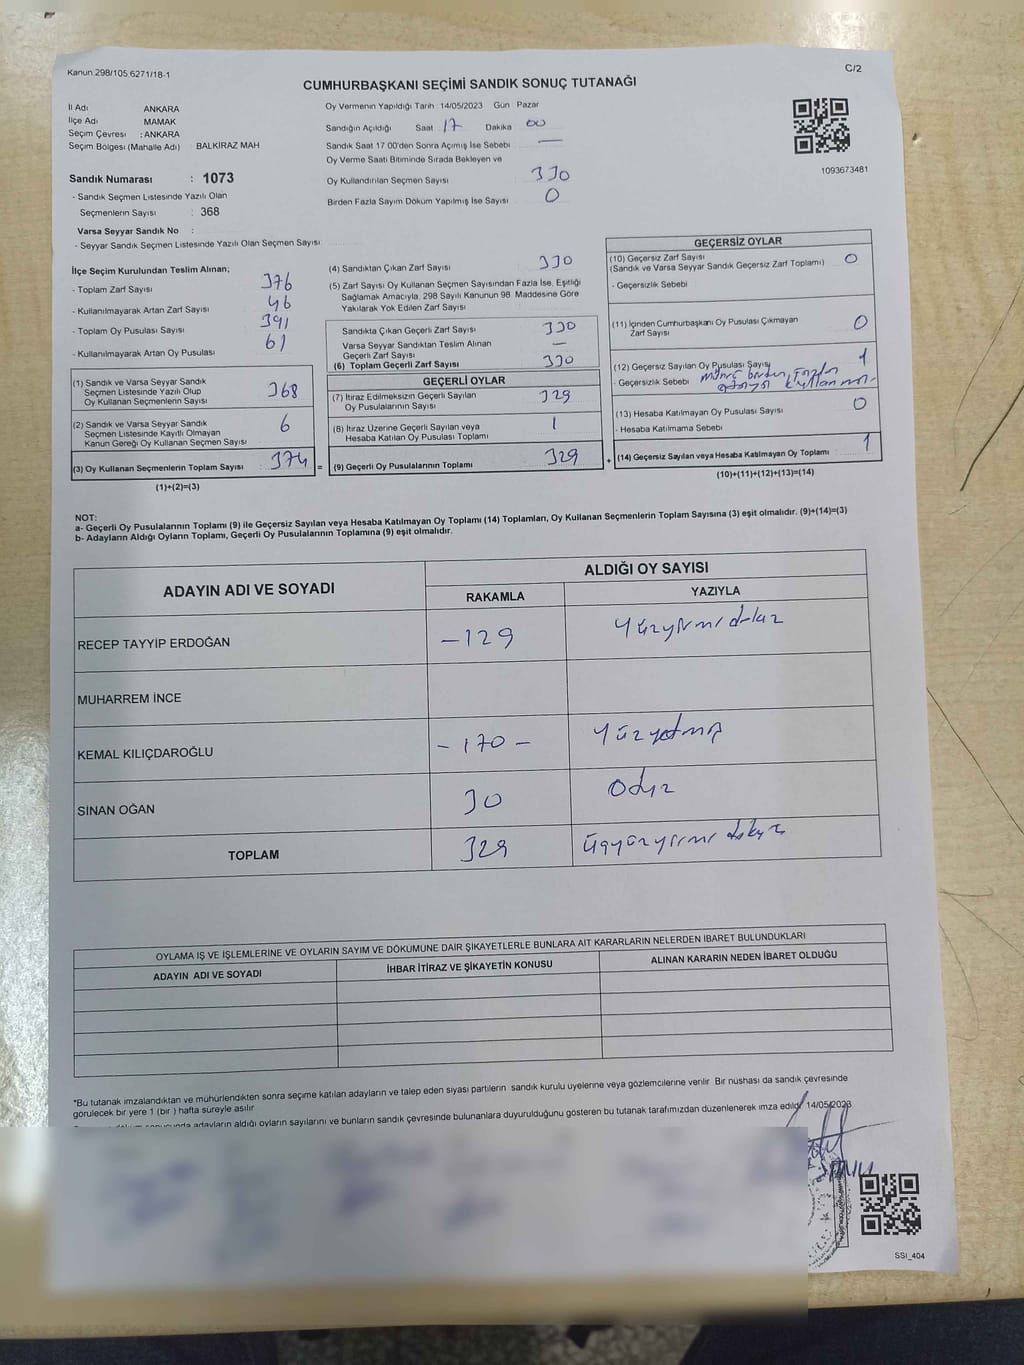 Kanun 298/105 6271/18-1
C/2
CUMHURBAŞKANI SEÇİMİ SANDIK SONUÇ TUTANAĞI
İl Adı ANKARA
İlçe Adı MAMAK
Seçim Çevresi : ANKARA
Seçim Bölgesi (Mahalle Adı) BALKİRAZ MAH
Oy Vermenin Yapıldığı Tarih 14/05/2023 Gün Pazar
Sandığın Açıldığı Saat 17 Dakika 00
Sandık Saat 17 00'den Sonra Açılmış İse Sebebi —
Oy Verme Saati Bitiminde Sırada Bekleyen ve
Oy Kullandırılan Seçmen Sayısı 330
Birden Fazla Sayım Döküm Yapılmış İse Sayısı 0
1093673481
Sandık Numarası : 1073
- Sandık Seçmen Listesinde Yazılı Olan
Seçmenlerin Sayısı : 368
Varsa Seyyar Sandık No :
- Seyyar Sandık Seçmen Listesinde Yazılı Olan Seçmen Sayısı
İlçe Seçim Kurulundan Teslim Alınan;
- Toplam Zarf Sayısı 376
- Kullanılmayarak Artan Zarf Sayısı 46
- Toplam Oy Pusulası Sayısı 391
- Kullanılmayarak Artan Oy Pusulası 61
(1) Sandık ve Varsa Seyyar Sandık
Seçmen Listesinde Yazılı Olup
Oy Kullanan Seçmenlerin Sayısı 368
(2) Sandık ve Varsa Seyyar Sandık
Seçmen Listesinde Kayıtlı Olmayan
Kanun Gereği Oy Kullanan Seçmen Sayısı 6
(3) Oy Kullanan Seçmenlerin Toplam Sayısı 374 =
(1)+(2)=(3)
(4) Sandıktan Çıkan Zarf Sayısı 330
(5) Zarf Sayısı Oy Kullanan Seçmen Sayısından Fazla İse, Eşitliği
Sağlamak Amacıyla, 298 Sayılı Kanunun 98 Maddesine Göre
Yakılarak Yok Edilen Zarf Sayısı
Sandıkta Çıkan Geçerli Zarf Sayısı 330
Varsa Seyyar Sandıktan Teslim Alınan
Geçerli Zarf Sayısı —
(6) Toplam Geçerli Zarf Sayısı 330
GEÇERLİ OYLAR
(7) İtiraz Edilmeksizin Geçerli Sayılan
Oy Pusulalarının Sayısı 329
(8) İtiraz Üzerine Geçerli Sayılan veya
Hesaba Katılan Oy Pusulası Toplamı 1
(9) Geçerli Oy Pusulalarının Toplamı 329 +
GEÇERSİZ OYLAR
(10) Geçersiz Zarf Sayısı
(Sandık ve Varsa Seyyar Sandık Geçersiz Zarf Toplamı) 0
- Geçersizlik Sebebi
(11) İçinden Cumhurbaşkanı Oy Pusulası Çıkmayan
Zarf Sayısı 0
(12) Geçersiz Sayılan Oy Pusulası Sayısı 1
- Geçersizlik Sebebi fazla
(13) Hesaba Katılmayan Oy Pusulası Sayısı 0
- Hesaba Katılmama Sebebi
(14) Geçersiz Sayılan veya Hesaba Katılmayan Oy Toplamı 1
(10)+(11)+(12)+(13)=(14)
NOT:
a- Geçerli Oy Pusulalarının Toplamı (9) ile Geçersiz Sayılan veya Hesaba Katılmayan Oy Toplamı (14) Toplamları, Oy Kullanan Seçmenlerin Toplam Sayısına (3) eşit olmalıdır. (9)+(14)=(3)
b- Adayların Aldığı Oyların Toplamı, Geçerli Oy Pusulalarının Toplamına (9) eşit olmalıdır.
ADAYIN ADI VE SOYADI ALDIĞI OY SAYISI
RAKAMLA YAZIYLA
RECEP TAYYİP ERDOĞAN -129 Yüzyirmidokuz
MUHARREM İNCE
KEMAL KILIÇDAROĞLU - 170 - Yüzyetmiş
SİNAN OĞAN 30 Otuz
TOPLAM 329 Üçyüzyirmi dokuz
OYLAMA İŞ VE İŞLEMLERİNE VE OYLARIN SAYIM VE DÖKÜMÜNE DAİR ŞİKAYETLERLE BUNLARA AİT KARARLARIN NELERDEN İBARET BULUNDUKLARI
ADAYIN ADI VE SOYADI İHBAR İTİRAZ VE ŞİKAYETİN KONUSU ALINAN KARARIN NEDEN İBARET OLDUĞU
*Bu tutanak imzalandıktan ve mühürlendikten sonra seçime katılan adayların ve talep eden siyasi partilerin sandık kurulu üyelerine veya gözlemcilerine verilir Bir nüshası da sandık çevresinde
görülecek bir yere 1 (bir ) hafta süreyle asılır
adayların aldığı oyların sayılarını ve bunların sandık çevresinde bulunanlara duyurulduğunu gösteren bu tutanak tarafımızdan düzenlenerek imza edildi 14/05/2023
SSI_404